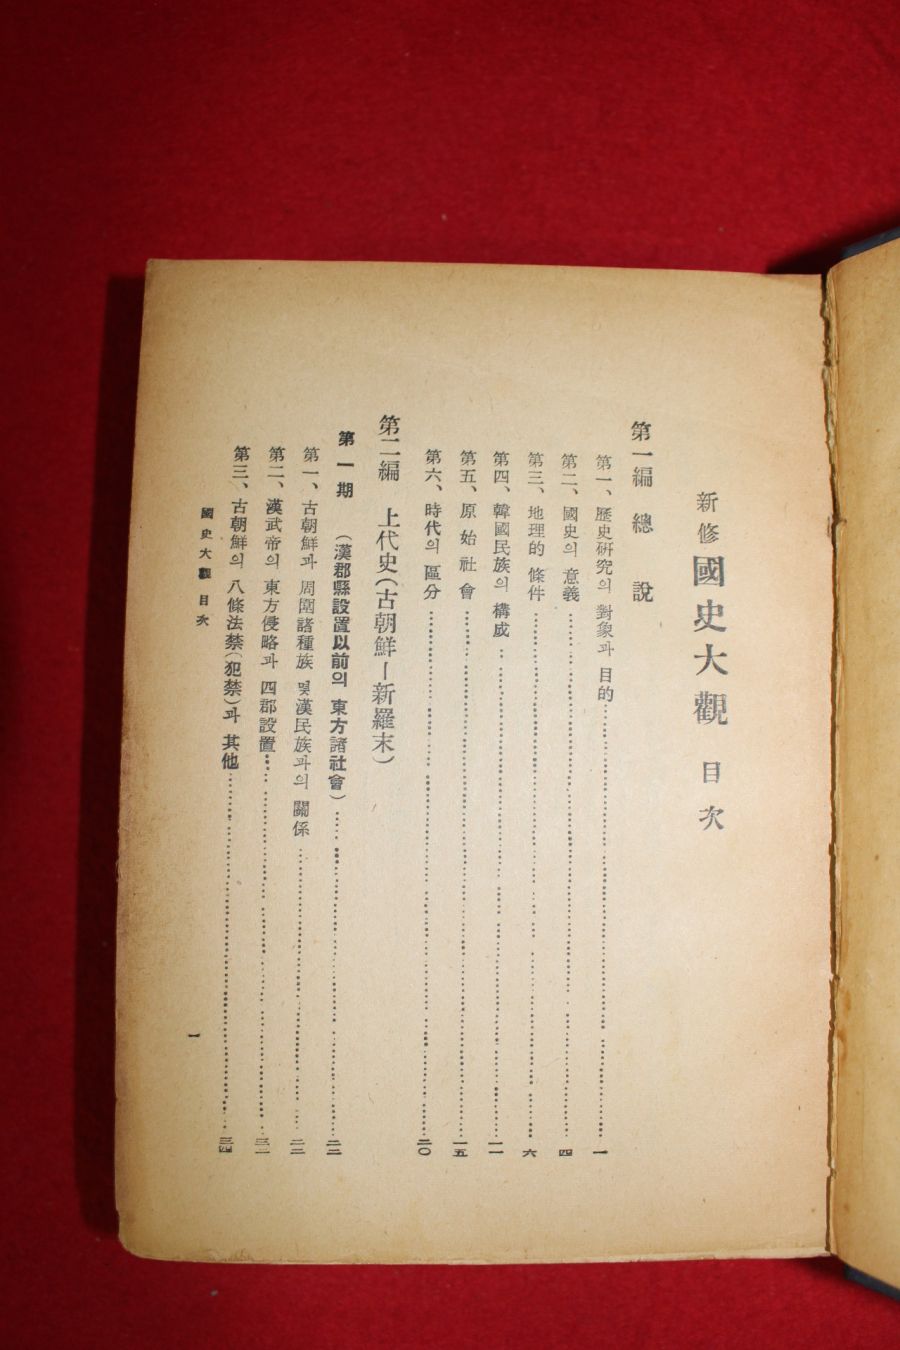 新修 國史大觀 目次
第一編 總說
第一、歷史硏究의 對象과 目的 一
第二、國史의 意義 四
第三、地理的 條件 六
第四、韓國民族의 構成 一一
第五、原始社會 一五
第六、時代의 區分 二〇
第二編 上代史(古朝鮮—新羅末)
第一期 (漢郡縣設置以前의 東方諸社會) 二二
第一、古朝鮮과 周圍諸種族 및 漢民族과의 關係 二二
第二、漢武帝의 東方侵略과 四郡設置 三一
第三、古朝鮮의 八條法禁(犯禁)과 其他 三四
國史大觀 目次
一